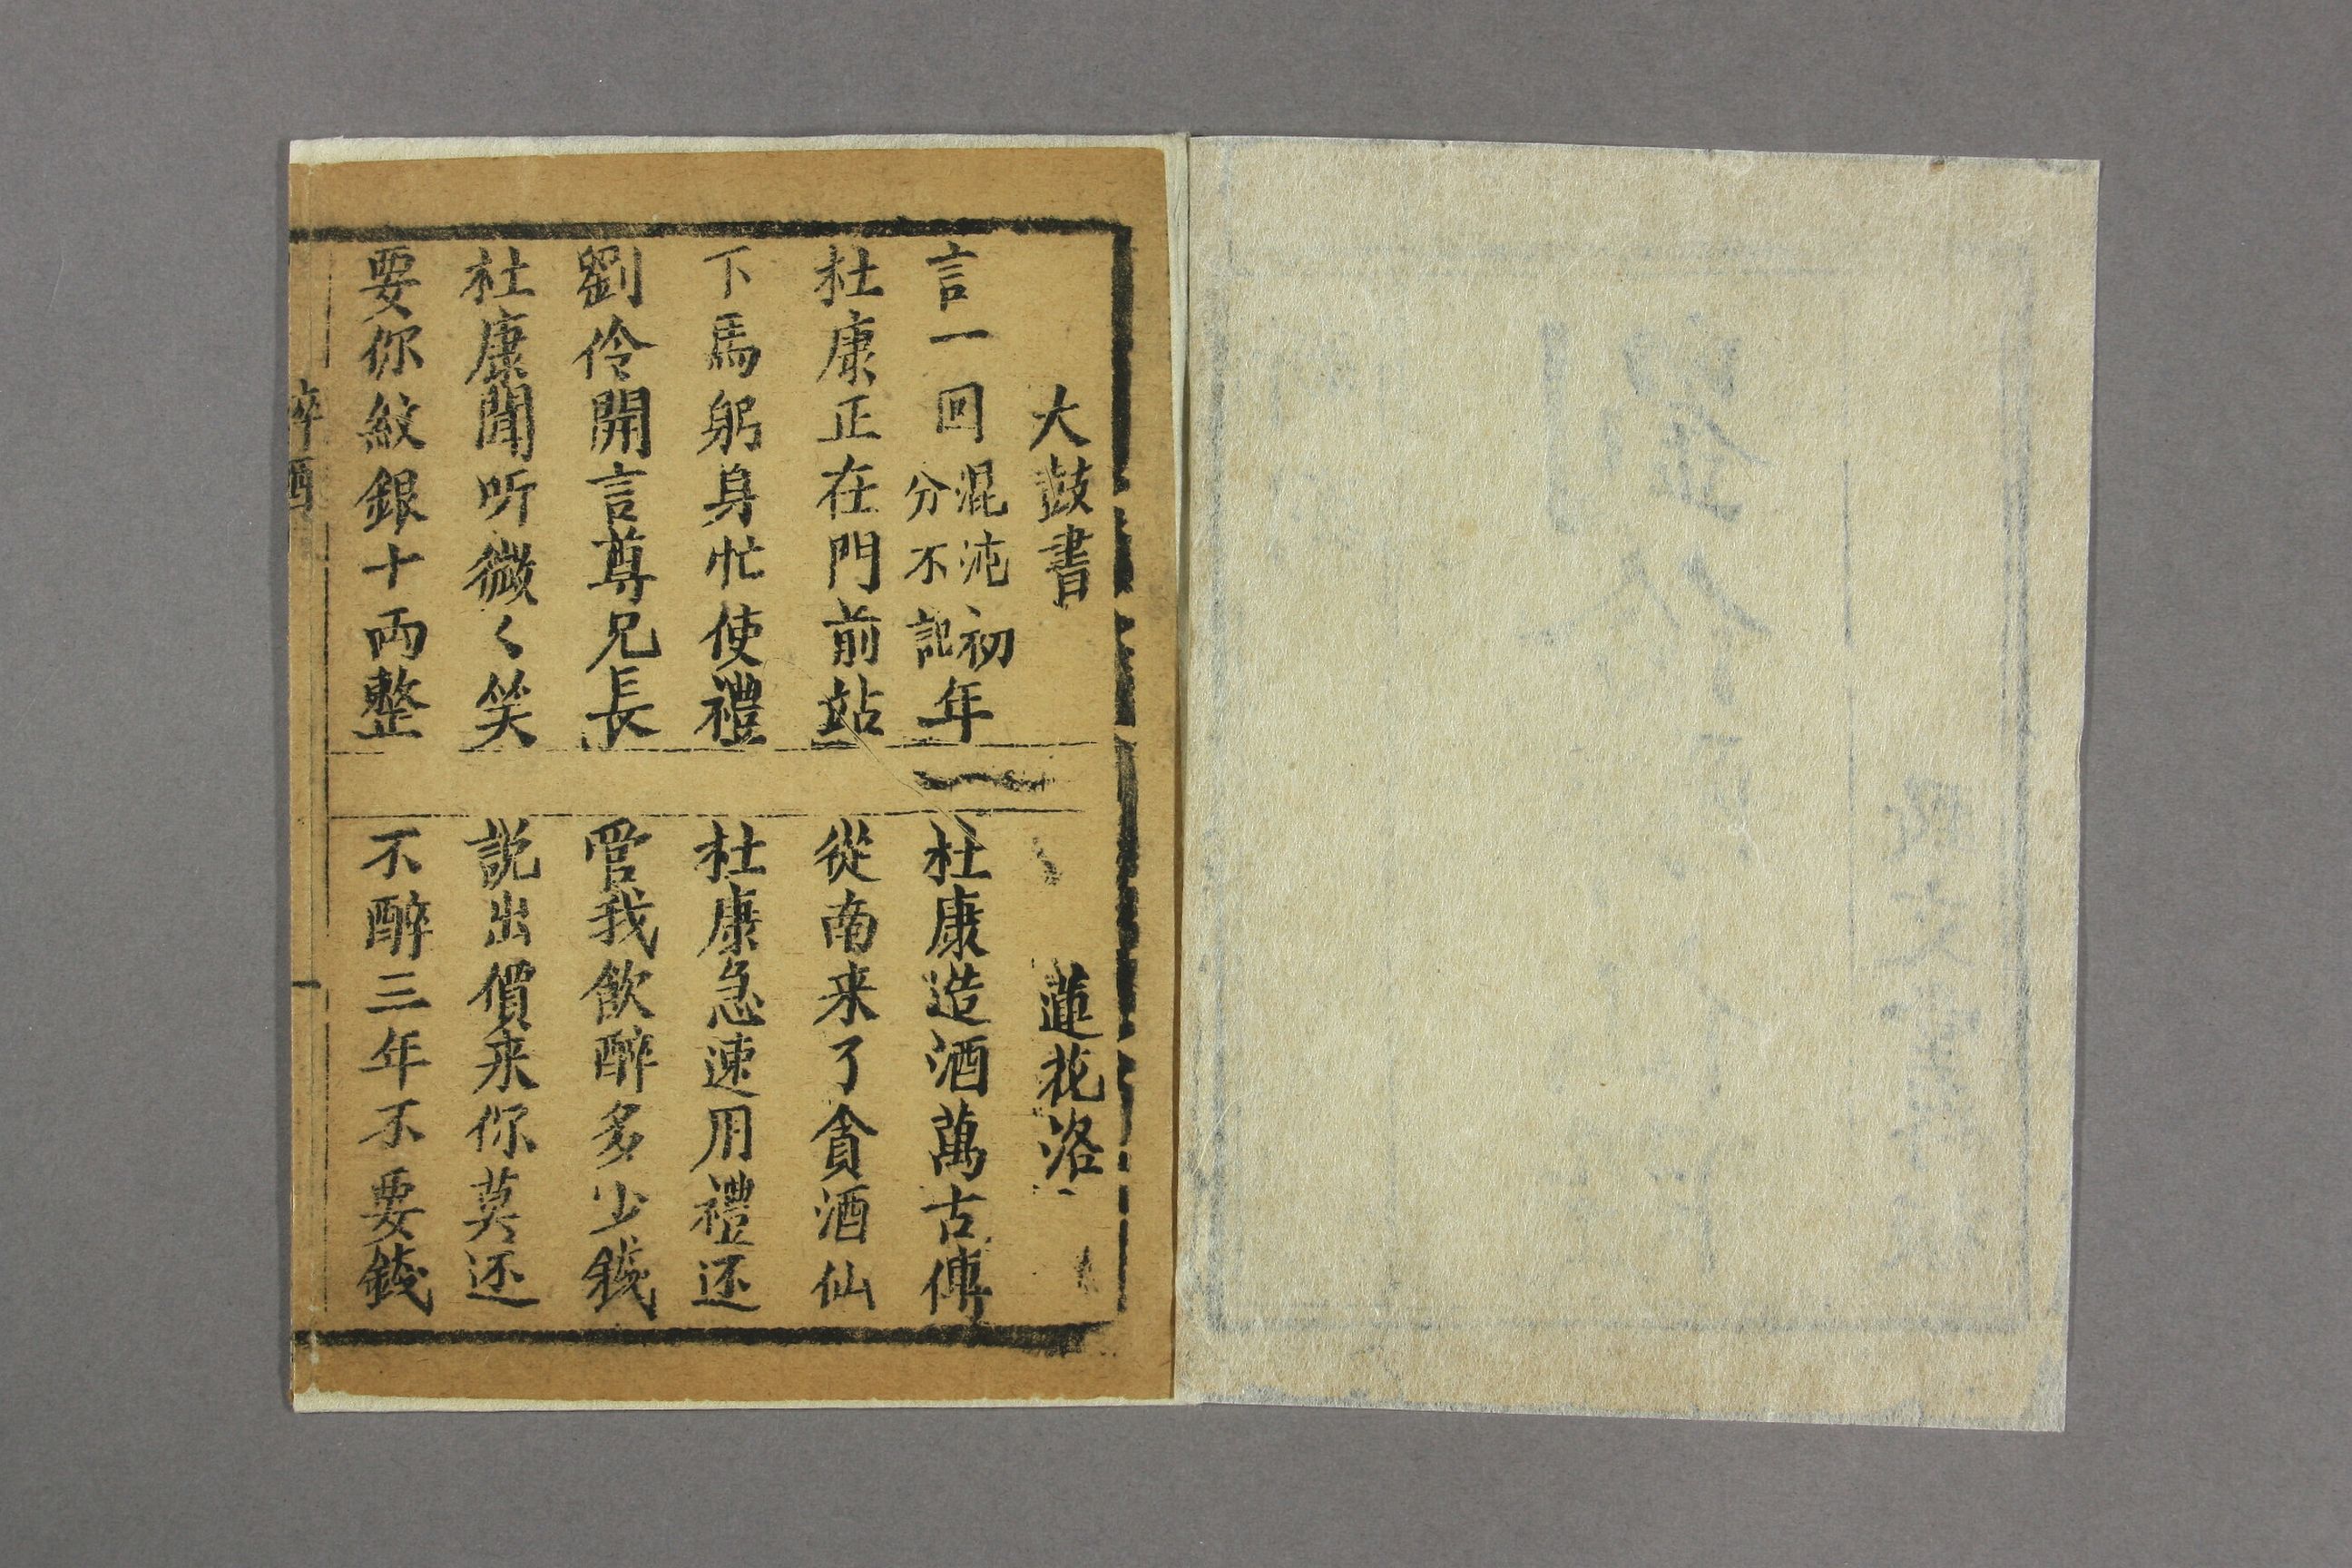 大鼓書
蓮花洛
言一回混沌初分不記年
杜康造酒萬古傳
杜康正在門前站
從南来了貪酒仙
下馬躬身忙使禮
杜康急速用禮还
劉伶開言尊兄長
管我飲醉多少錢
杜康聞听微〱笑
説出價来你莫还
要你紋銀十両整
不醉三年不要錢
醉酒
一